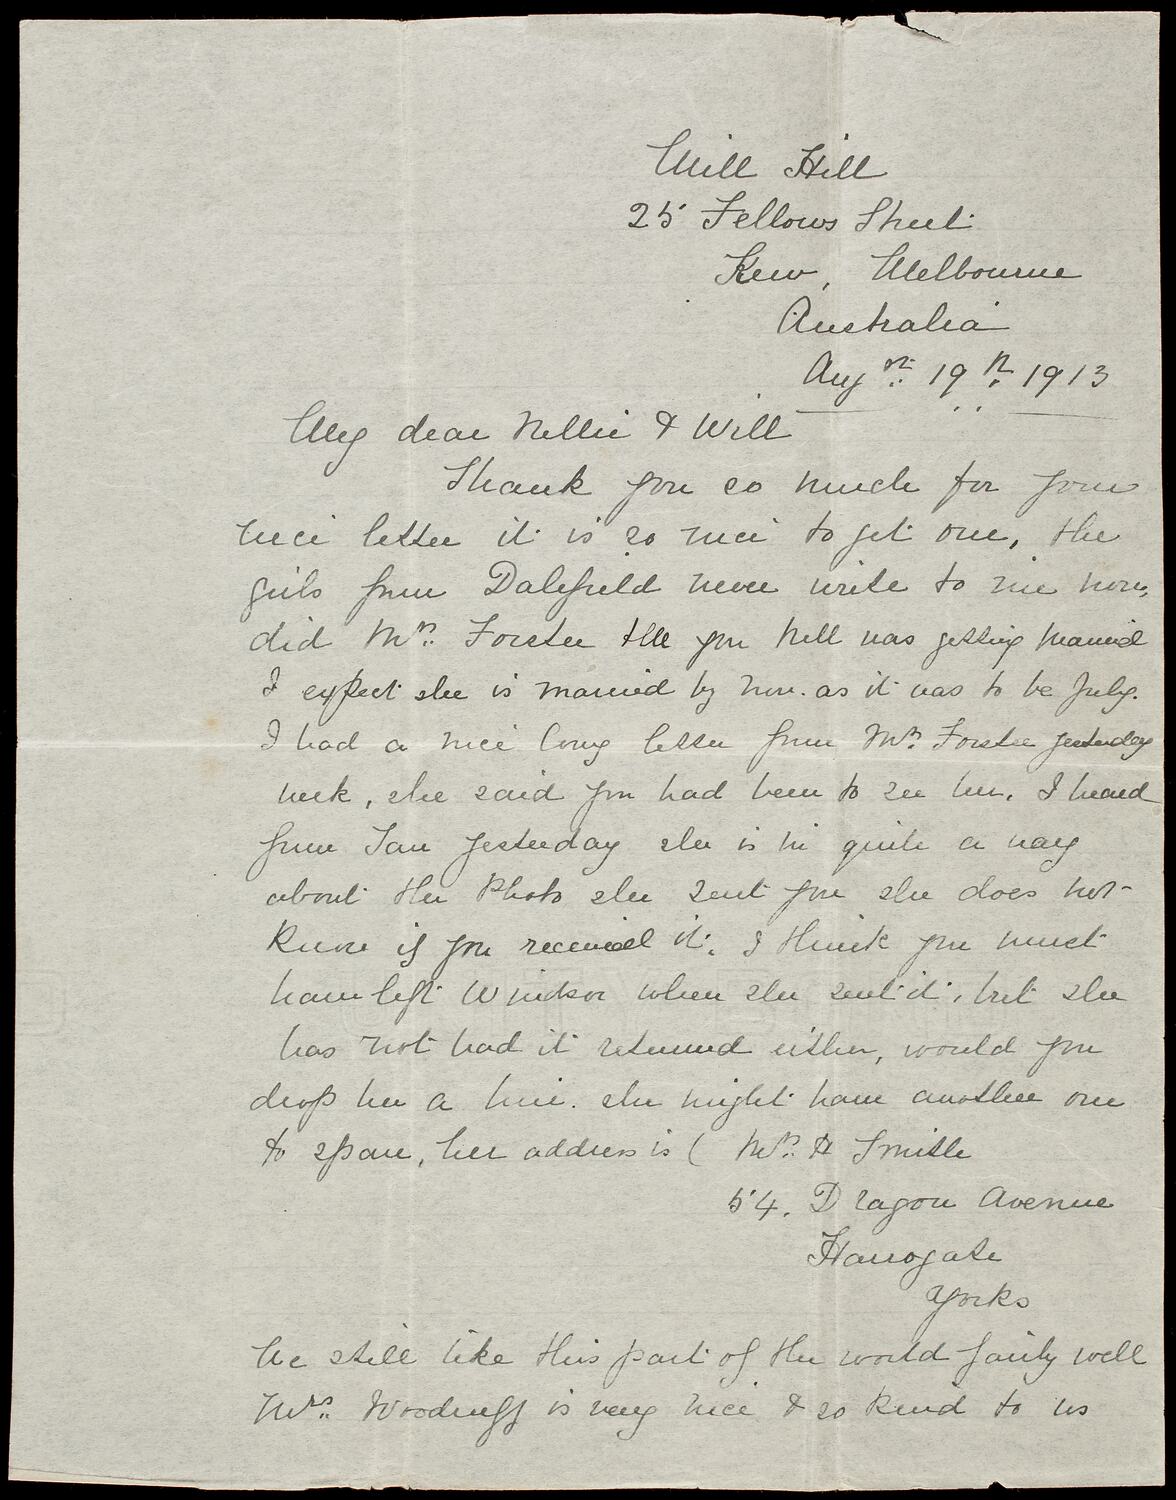 Mill Hill
25 Fellows Street
Kew, Melbourne
Australia
Augst 19th 1913
My dear Nellie & Will
Thank you so much for your
nice letter it is so nice to get one, the
girls from Dalefield never write to me now,
did Mrs. Forster tell you Nell was getting married
I expect she is married by now. as it was to be July.
I had a nice long letter from Mrs. Forster yesterday
week, she said you had been to see her. I heard
from Jan yesterday she is in quite a way
about the Photo she sent you she does not
know if you received it. I think you must
have left Windsor when she sent it, but she
has not had it returned either, would you
drop her a line. she might have another one
to spare, her address is ( Mrs. H Smith
54. Dragon Avenue
Harrogate
Yorks
We still like this part of the world fairly well
Mrs. Woodruff is very nice & so kind to us